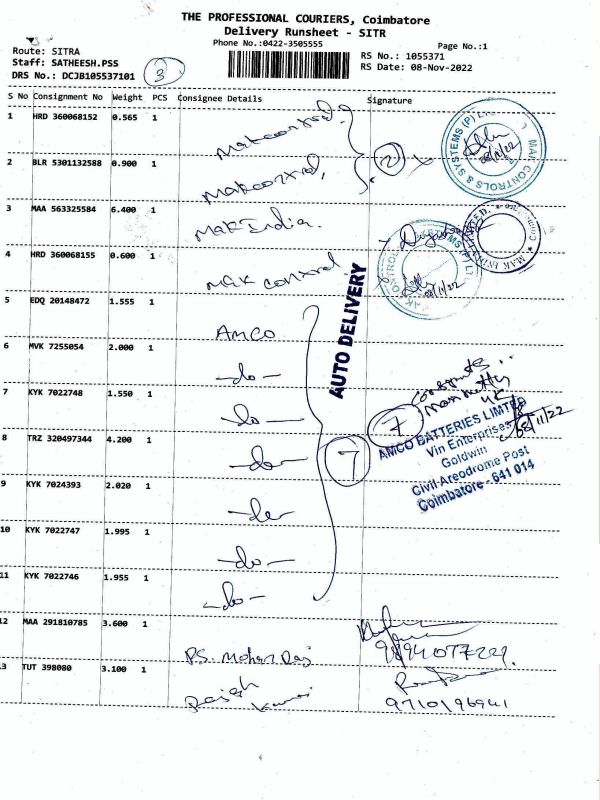 THE PROFESSIONAL COURIERS, Coimbatore
Delivery Runsheet - SITR
Phone No.:0422-3505555
Page No.:1
Route: SITRA
RS No.: 1055371
Staff: SATHEESH.PSS
RS Date: 08-Nov-2022
DRS No.: DCJB105537101
3
S No Consignment No Weight PCS Consignee Details Signature
1 HRD 360068152 0.565 1 Mak control.
2 BLR 5301132588 0.900 1 Mak control, 2
MAK CONTROLS & SYSTEMS (P) LTD
08/11/22
3 MAA 563325584 6.400 1 Mak India.
4 HRD 360068155 0.600 1 Mak control
08/11/22
5 EDQ 20148472 1.555 1 AMCO
AUTO DELIVERY
6 MVK 7255054 2.000 1 -do-
7 KYK 7022748 1.550 1 -do-
7
8 TRZ 320497344 4.200 1 -do-
7
AMCO BATTERIES LIMITED
Vin Enterprises
Goldwin
Civil-Areodrome Post
Coimbatore - 641 014
08/11/22
9 KYK 7024393 2.020 1 -do-
10 KYK 7022747 1.995 1 -do-
11 KYK 7022746 1.955 1 -do-
12 MAA 291810785 3.600 1 P.S. Mohan Raj
9894077229.
13 TUT 398080 3.100 1 Rajesh Kumar
9710196941